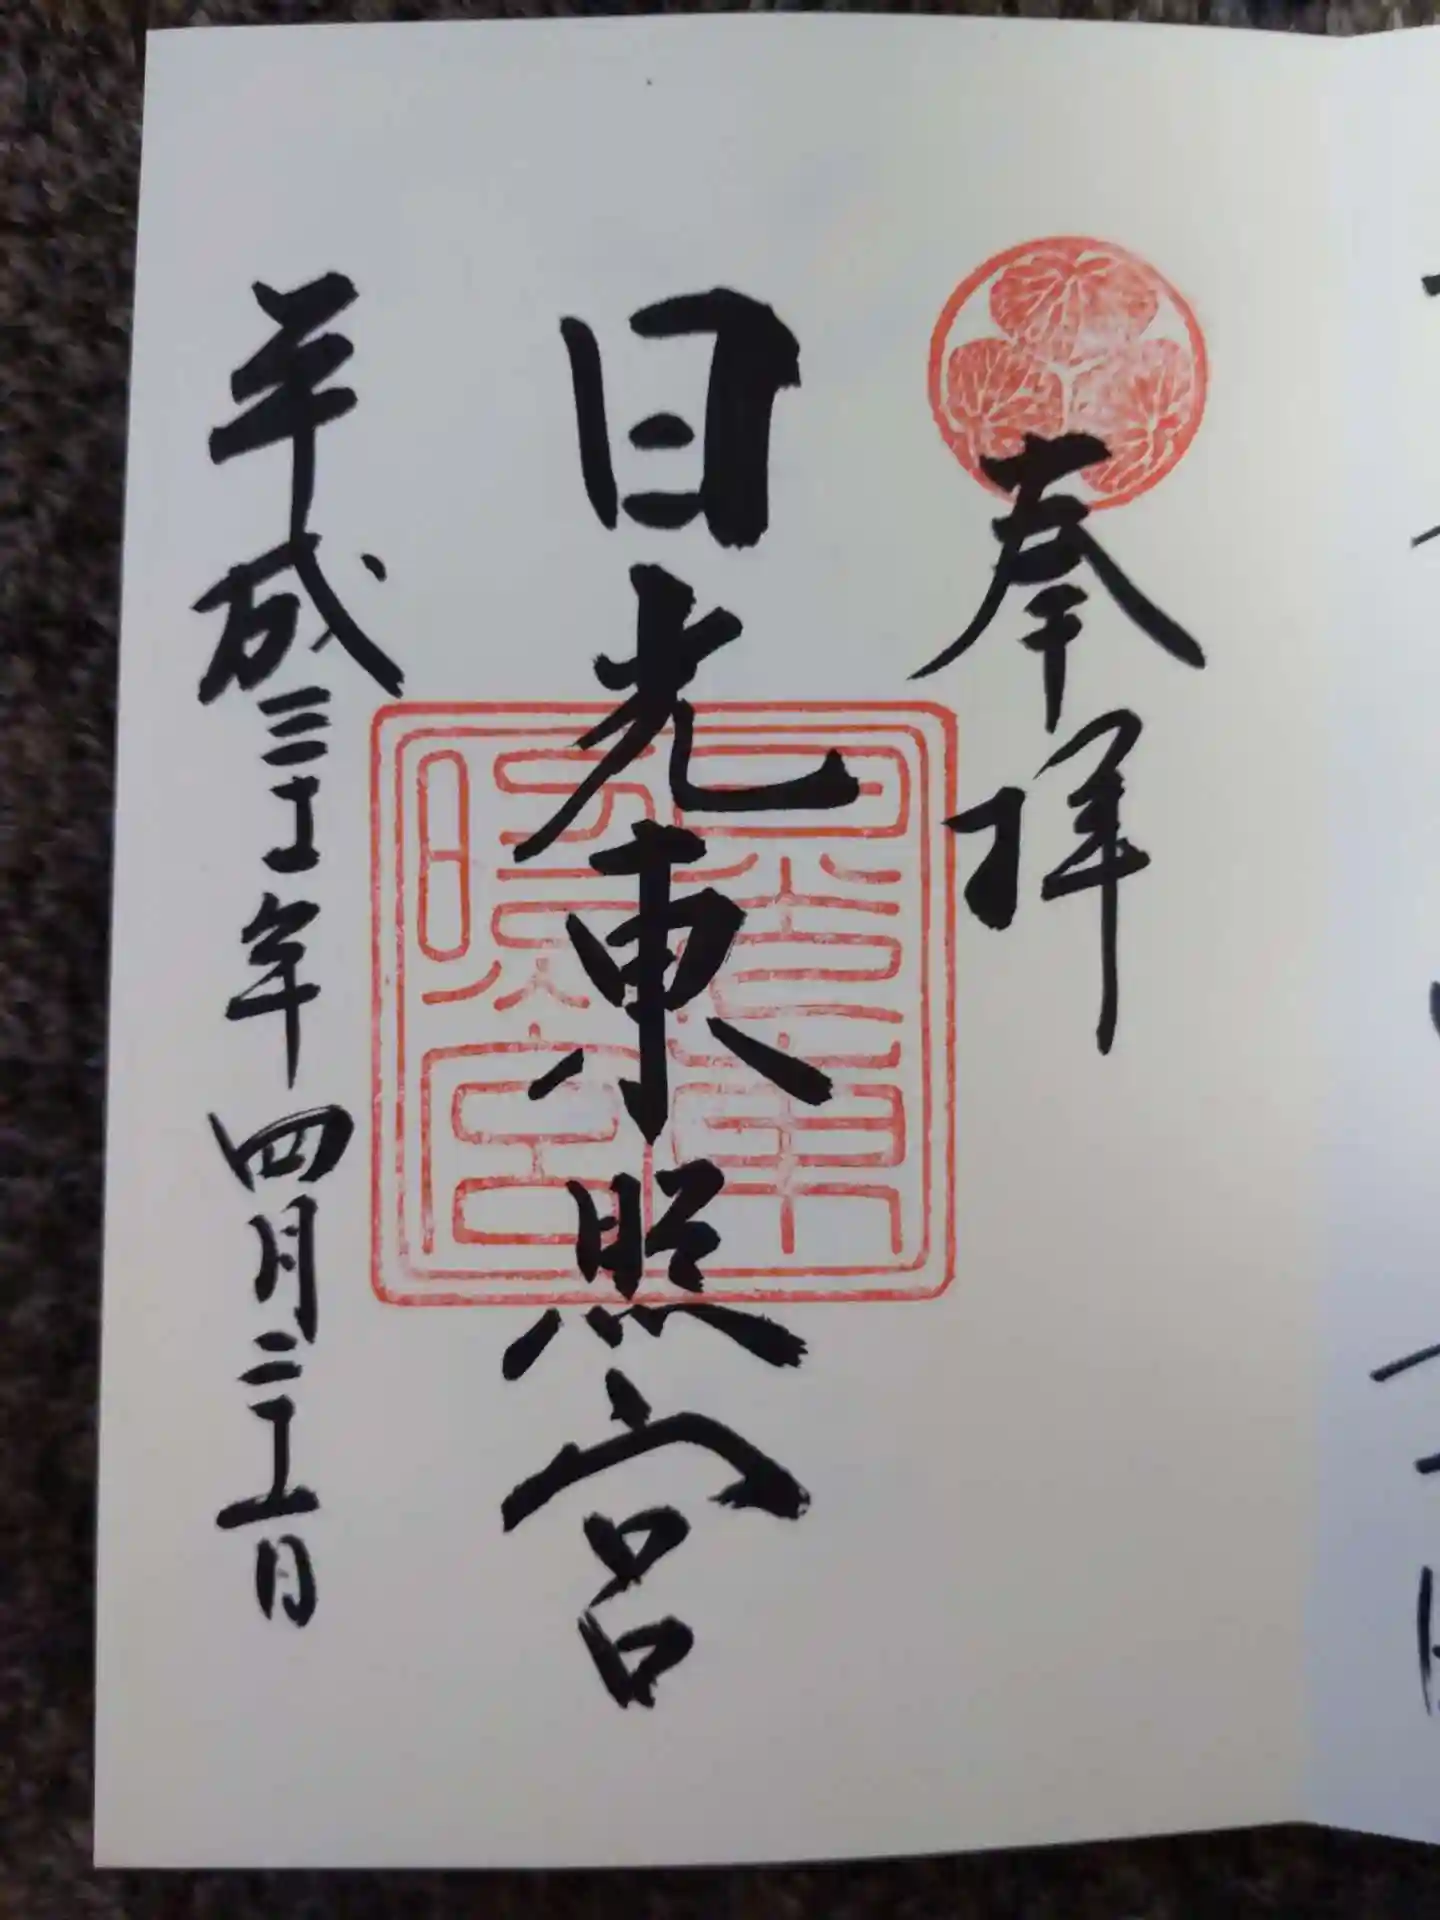 奉拝
日光東照宮
平成三十一年四月二十一日
日光東
照宮